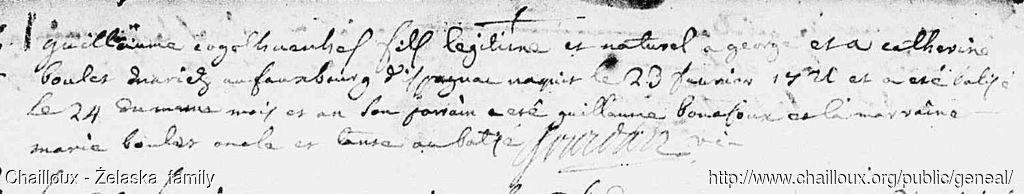 guilleaume eogelhuenhes fils legitime et naturel a george et a catherine
boulet mariez au fauxbourg d'ispagnac naquit le 23 fevrier 1721 et a eté batisé
le 24 du meme mois et an son parrain a eté guillaume bonafoux et la marraine
marie boulet oncle et tante au batisé Jourdan vic
Chailloux - Żelaska family
http://www.chailloux.org/public/geneal/